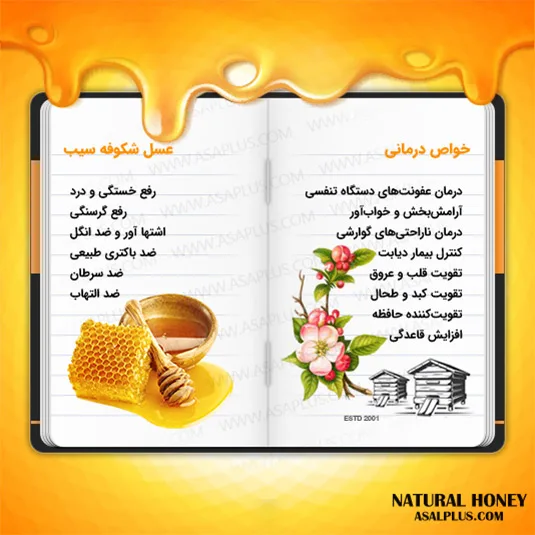 خواص درمانی
درمان عفونت‌های دستگاه تنفسی
آرامش‌بخش و خواب‌آور
درمان ناراحتی‌های گوارشی
کنترل بیمار دیابت
تقویت قلب و عروق
تقویت کبد و طحال
تقویت‌کننده حافظه
افزایش قاعدگی
ESTD 2001
عسل شکوفه سیب
رفع خستگی و درد
رفع گرسنگی
اشتها آور و ضد انگل
ضد باکتری طبیعی
ضد سرطان
ضد التهاب
WWW.ASALPLUS.COM
NATURAL HONEY
ASALPLUS.COM